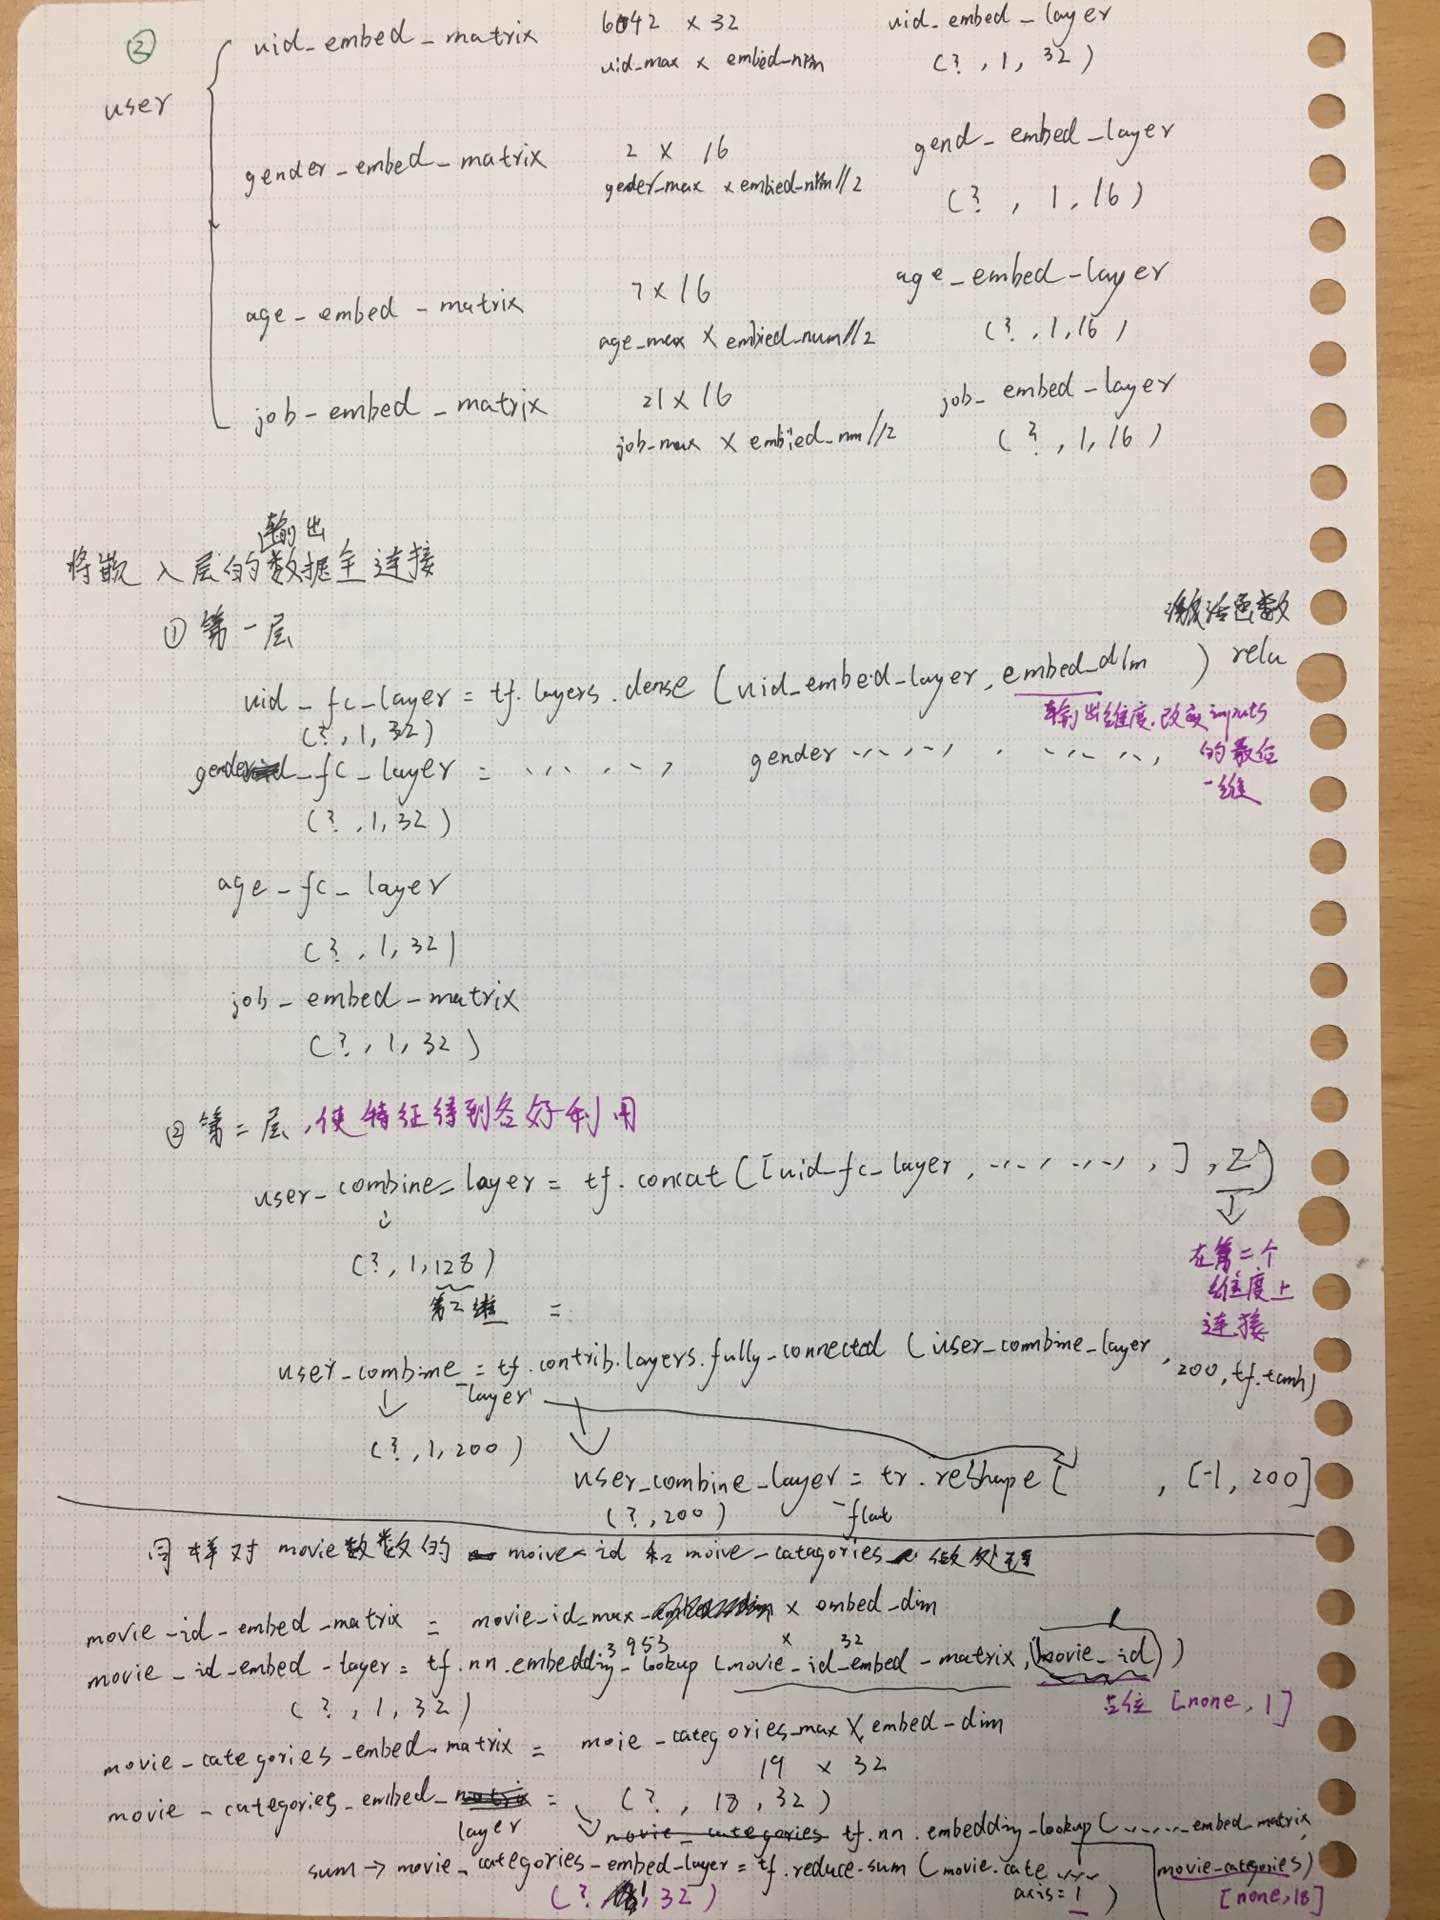 ②
user
uid_embed_matrix 6042 × 32 uid_embed_layer
uid_max × embed_ (?, 1, 32)
gender_embed_matrix 2 × 16 gend_embed_layer
gender_max × embed_ //2 (?, 1, 16)
age_embed_matrix 7×16 age_embed_layer
age_max × embed_num//2 (?, 1, 16)
job_embed_matrix 21×16 job_embed_layer
job_max × embed_nm//2 (?, 1, 16)
输出
将嵌入层的数据全连接
① 第一层
激活函数
uid_fc_layer = tf.layers.dense (uid_embed_layer, embed_dim ) relu
(?, 1, 32)
输出维度,改变inputs
的最后
一维
gender_fc_layer = ...... gender ......
(?, 1, 32)
age_fc_layer
(?, 1, 32)
job_embed_matrix
(?, 1, 32)
② 第二层,使特征得到各好利用
user_combine_layer = tf.concat([uid_fc_layer, ......, ], 2)
(?, 1, 128)
第2维
在第二个
维度上
连接
user_combine_layer = tf.contrib.layers.fully_connected (user_combine_layer, 200, tf.tanh)
(?, 1, 200)
user_combine_layer_flat = tr.reshape[ , [-1, 200]
(?, 200)
同样对 movie数数的 moive_id 和 moive_catagories 做处理
movie_id_embed_matrix = movie_id_max × embed_dim
3953 × 32
movie_id_embed_layer = tf.nn.embedding_lookup (movie_id_embed_matrix, (movie_id))
(?, 1, 32)
占位 [none, 1]
movie_categories_embed_matrix = moie_categories_max × embed_dim
19 × 32
movie_categories_embed_layer = (?, 18, 32)
tf.nn.embedding_lookup(......embed_matrix,
movie_categories)
[none, 18]
sum → movie_categories_embed_layer = tf.reduce_sum (movie_cate...
axis=1 )
(?, 1, 32)